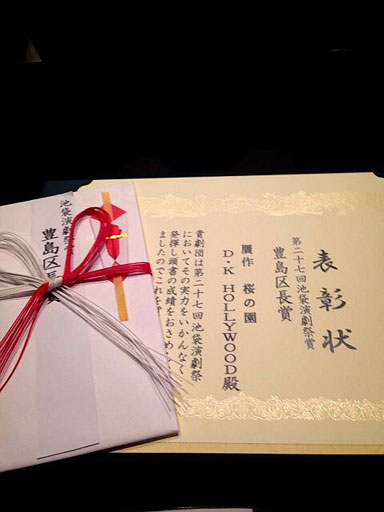 表彰状
第二十七回池袋演劇祭賞
豊島区長賞
贋作 桜の園
D・K HOLLYWOOD殿
貴劇団は第二十七回池袋演劇祭
においてその実力をいかんなく
発揮し頭書の成績をおさめ
ましたのでこれを
池袋演劇祭
豊島区長